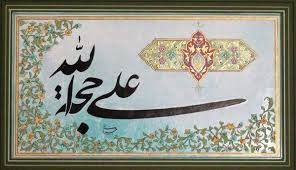 علی حجة الله